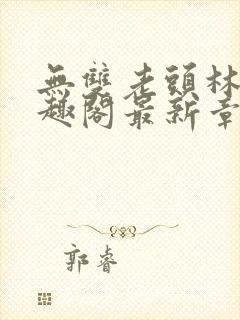 無雙老頭林
趣閣最新章
郭睿